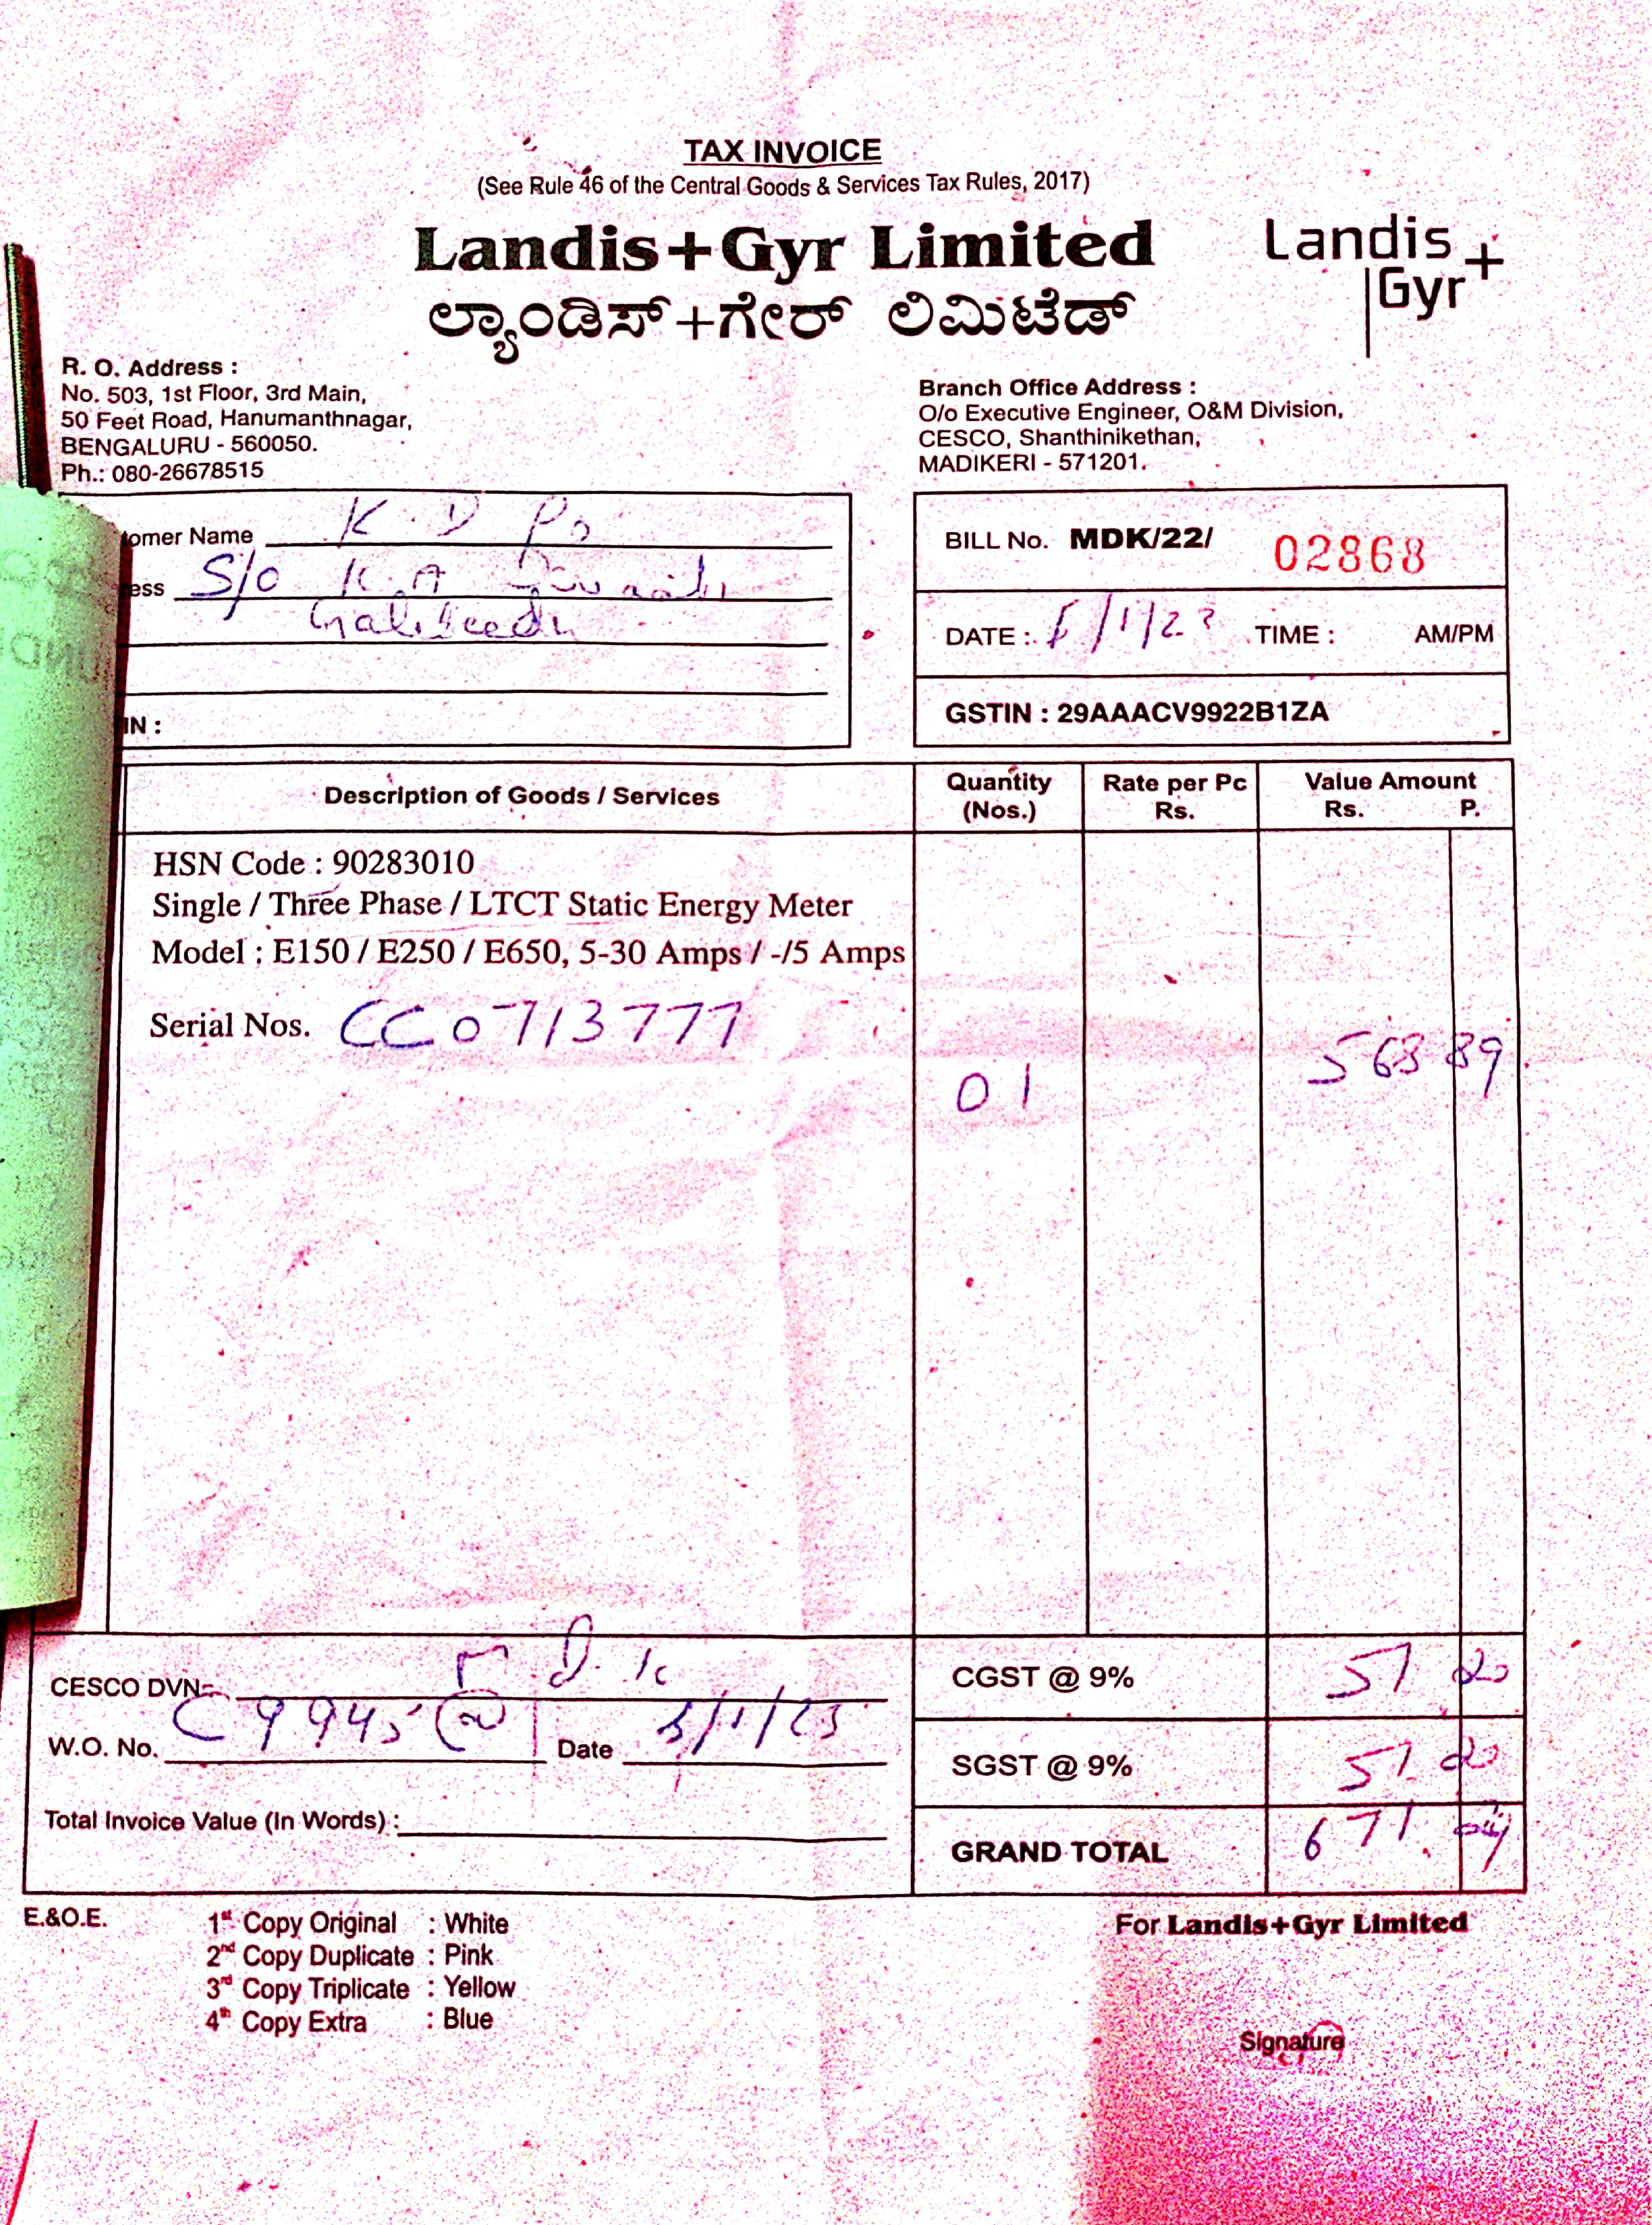 TAX INVOICE
(See Rule 46 of the Central Goods & Services Tax Rules, 2017)
Landis+Gyr Limited
Landis
Gyr+
ಲ್ಯಾಂಡಿಸ್+ಗೇರ್ ಲಿಮಿಟೆಡ್
R. O. Address :
No. 503, 1st Floor, 3rd Main,
50 Feet Road, Hanumanthnagar,
BENGALURU - 560050.
Ph.: 080-26678515
Branch Office Address :
O/o Executive Engineer, O&M Division,
CESCO, Shanthinikethan,
MADIKERI - 571201.
omer Name K. D
ess S/o K. A
Galibeedu
IN :
BILL No. MDK/22/ 02868
DATE : /1/23 TIME : AM/PM
GSTIN : 29AAACV9922B1ZA
Description of Goods / Services Quantity (Nos.) Rate per Pc Rs. Value Amount Rs. P.
HSN Code : 90283010
Single / Three Phase / LTCT Static Energy Meter
Model : E150 / E250 / E650, 5-30 Amps / -/5 Amps
Serial Nos. CC0713777
01 568 89
CESCO DVN
CGST @ 9% 51. 20
W.O. No. C9945 Date 5/1/23
SGST @ 9% 51. 20
Total Invoice Value (In Words) :
GRAND TOTAL 671.
E.&O.E.
1st Copy Original : White
2nd Copy Duplicate : Pink
3rd Copy Triplicate : Yellow
4th Copy Extra : Blue
For Landis+Gyr Limited
Signature